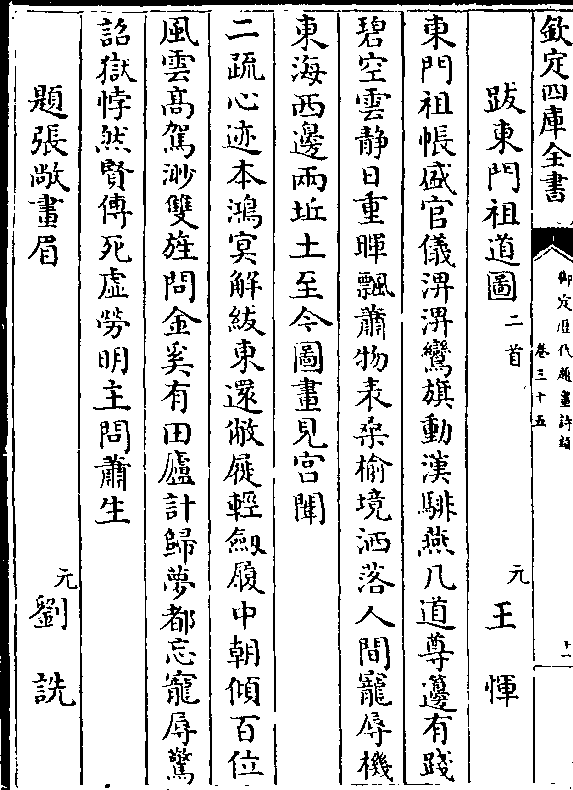 欽定四庫全書
御定歷代題畫詩類
卷三十五
十一
跋東門祖道圖 二首 元 王惲
東門祖帳盛官儀淠淠鸞旗動漢騑燕几道尊籩有踐
碧空雲静日重暉飄蕭物表桑榆境洒落人間寵辱機
東海西邊兩坵土至今圖畫見宮闈
二疏心迹本鴻冥解紱東還敝屣輕劒履中朝傾百位
風雲髙駕渺雙旌問金奚有田廬計歸夢都忘寵辱驚
詔獄悖然賢傅死虛勞明主問蕭生
題張敞畫眉 元 劉詵